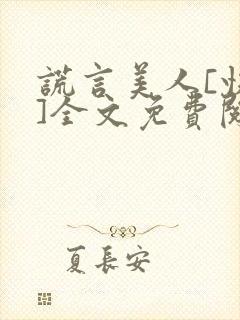 謊言美人[
]全文免費閱
夏長安